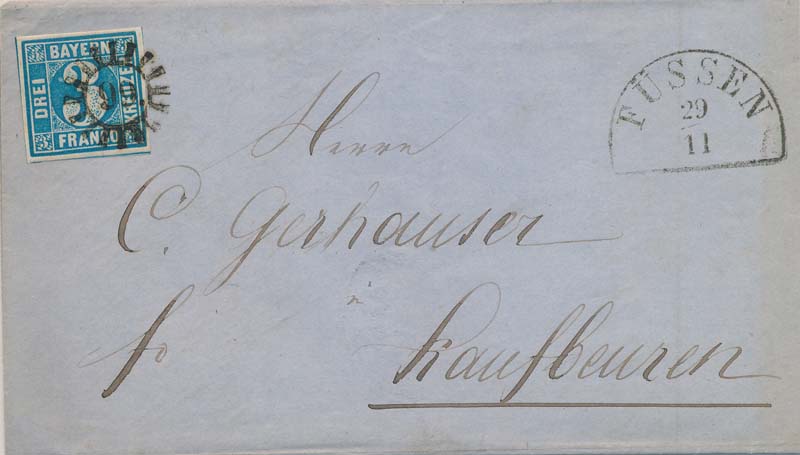 BAYERN
DREI
3
KREUZER
FRANCO
FÜSSEN
29
11
Herrn
C. Gerhauser
in
fr
Kaufbeuren